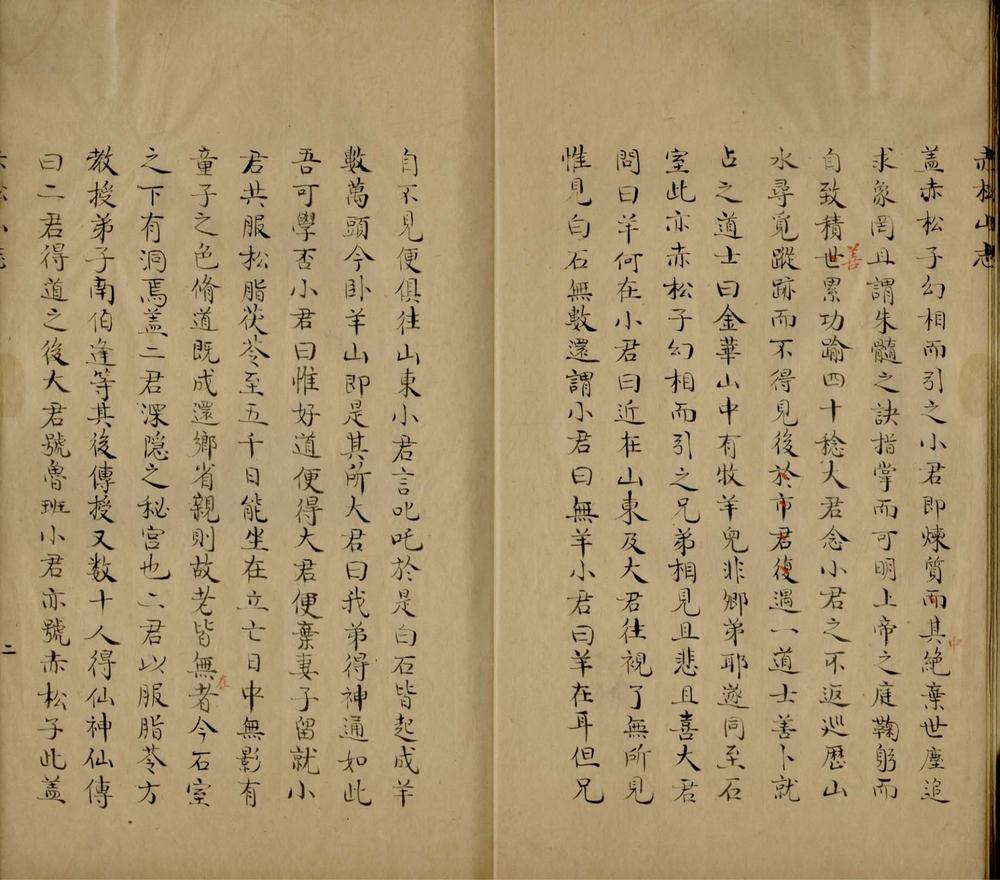 赤松山志
盖赤松子幻相而引之小君即煉質而其絶棄世塵追
中
求象罔且謂朱髓之訣指掌而可明上帝之庭鞠躬而
自致積世累功踰四十稔大君念小君之不返巡歷山
善
水尋覓蹤跡而不得見後於市君復遇一道士善卜就
占之道士曰金華山中有牧羊兒非卿弟耶遂同至石
室此亦赤松子幻相而引之兄弟相見且悲且喜大君
問曰羊何在小君曰近在山東及大君往視了無所見
惟見白石無數還謂小君曰無羊小君曰羊在耳但兄
自不見便俱往山東小君言叱吒於是白石皆起成羊
數萬頭今卧羊山即是其所大君曰我弟得神通如此
吾可學否小君曰惟好道便得大君便棄妻子留就小
君共服松脂茯苓至五千日能坐在立亡日中無影有
童子之色脩道既成還鄉省親則故老皆無者今石室
在
之下有洞焉盖二君深隠之秘宫也二君以服脂苓方
教授弟子南伯逢等其後傳授又数十人得仙神仙傳
曰二君得道之後大君號魯班小君亦號赤松子此盖
二